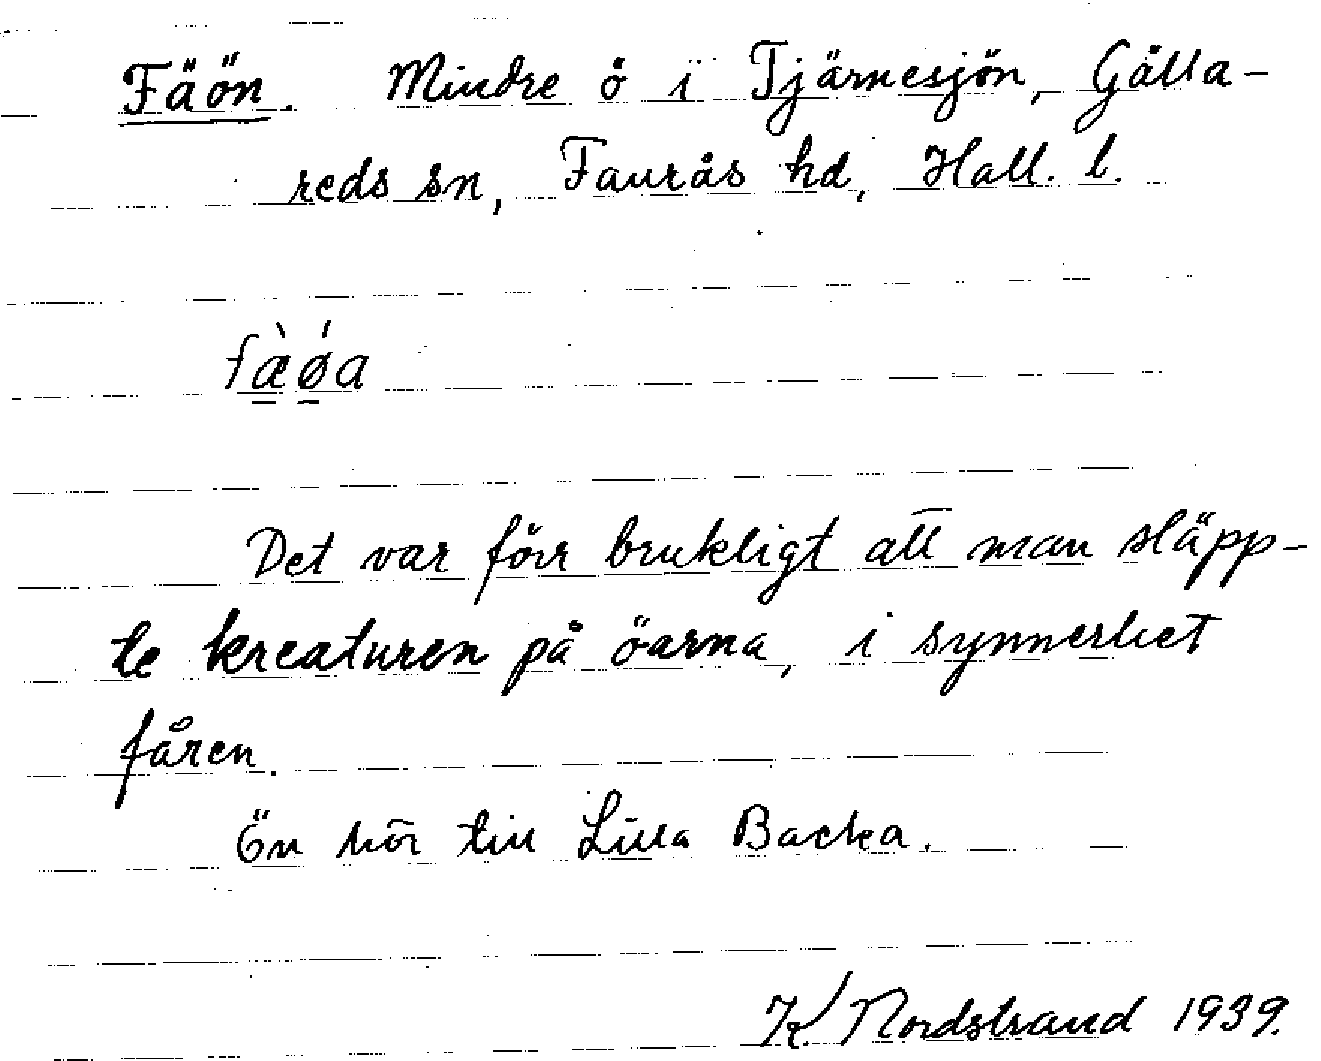 Fäön. Mindre ö i Tjärnesjön, Gälla-
reds sn, Faurås hd, Hall. l.
fæ̱̀ǿ̱a
Det var förr brukligt att man släpp-
te kreaturen på öarna, i synnerhet
fåren.
Ön hör till Lilla Backa.
K Nordstrand 1939.